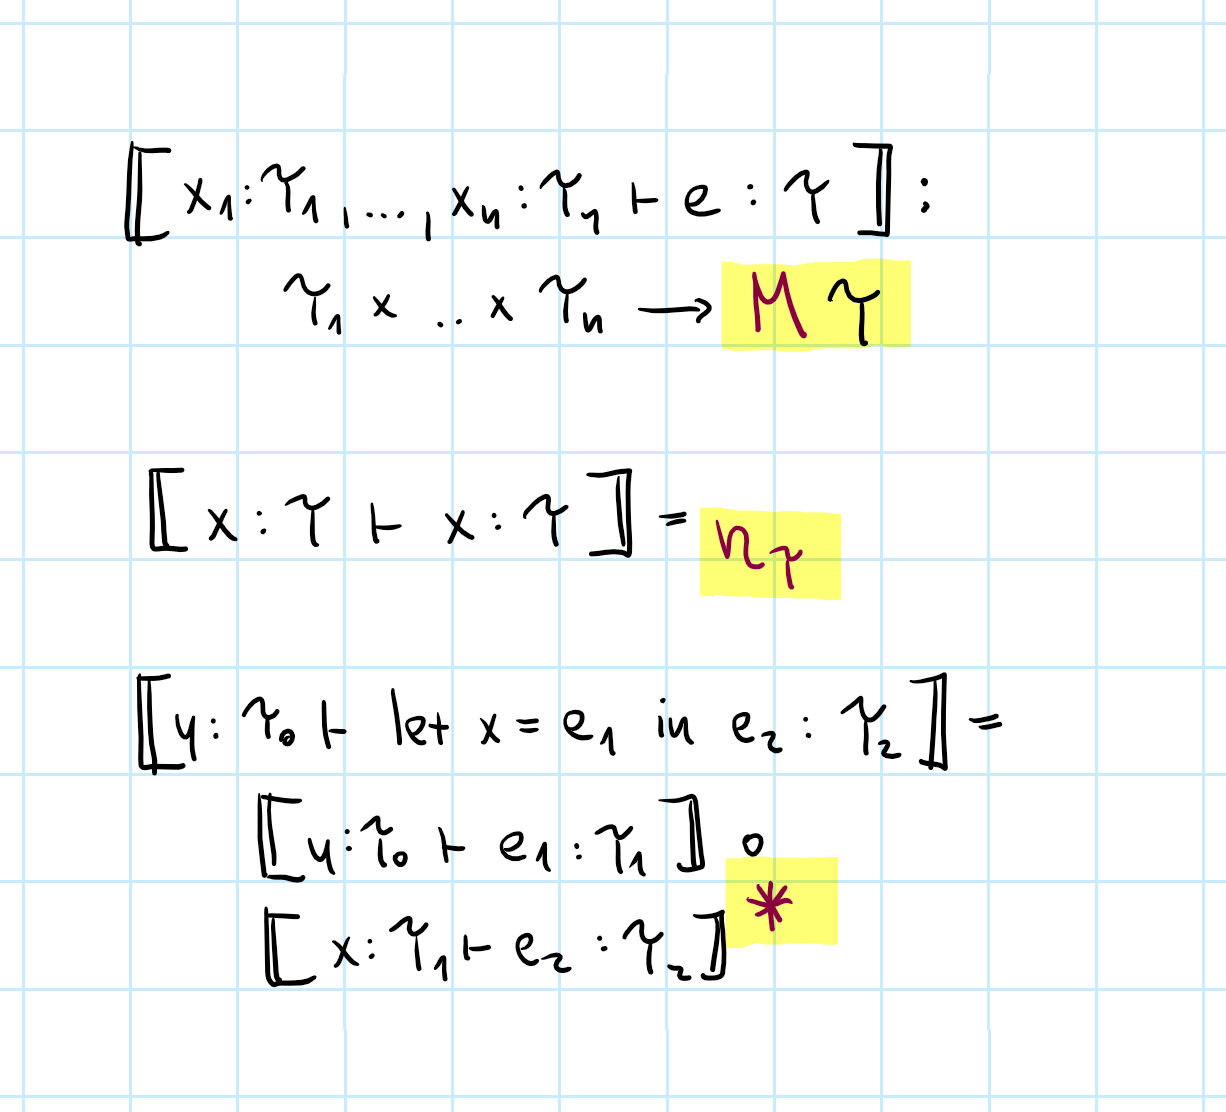 ⟦ x₁:τ₁,...,xₙ:τₙ ⊢ e : τ ⟧ :
τ₁ × .. × τₙ → M τ
⟦ x : τ ⊢ x : τ ⟧ = η_τ
⟦ y : τ₀ ⊢ let x = e₁ in e₂ : τ₂ ⟧ =
⟦ y : τ₀ ⊢ e₁ : τ₁ ⟧ ∘
⟦ x : τ₁ ⊢ e₂ : τ₂ ⟧ *